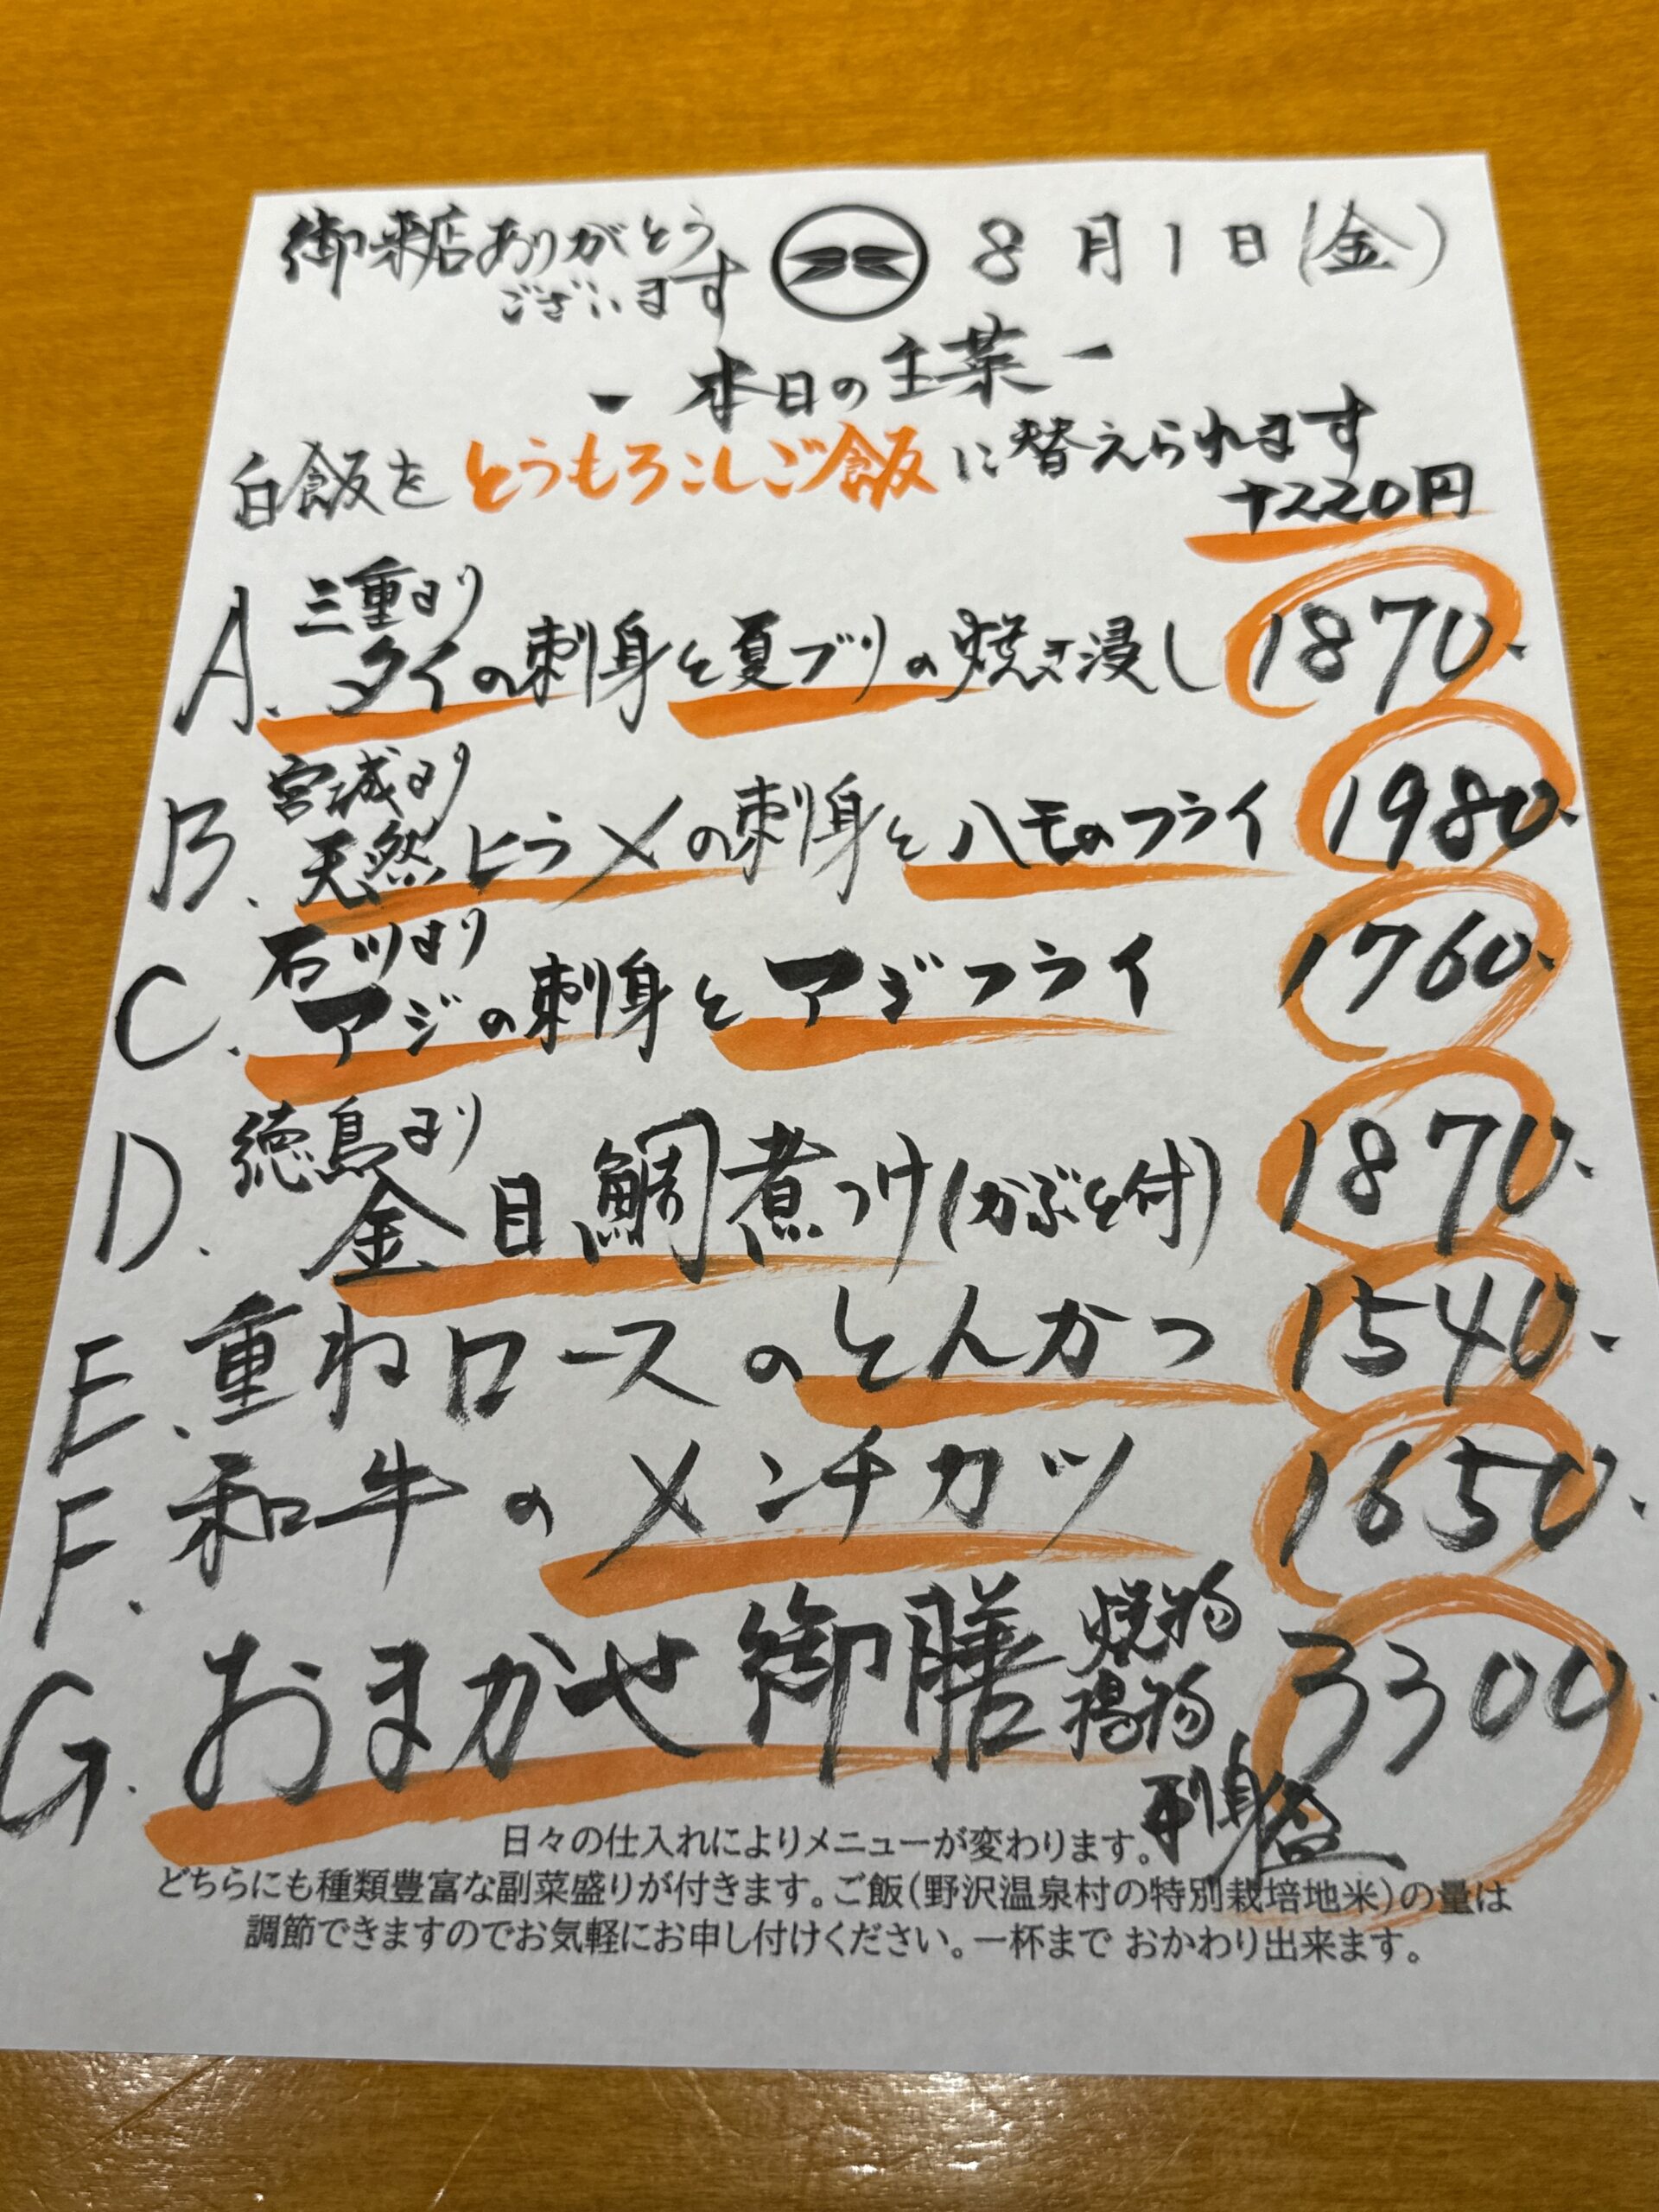 御来店ありがとう
ございます
8月1日(金)
- 本日の主菜 -
白飯をとうもろこしご飯に替えられます
+220円
三重より
A. タイの刺身と夏ブリの焼き浸し 1870.
宮城より
B. 天然ヒラメの刺身とハモのフライ 1980.
石川より
C. アジの刺身とアジフライ 1760.
徳島より
D. 金目鯛煮つけ(かぶと付) 1870.
E. 重ねロースのとんかつ 1540.
F. 和牛のメンチカツ 1650.
G. おまかせ御膳 焼物 3300.
揚物
刺身盛
日々の仕入れによりメニューが変わります。
どちらにも種類豊富な副菜盛りが付きます。ご飯(野沢温泉村の特別栽培地米)の量は
調節できますのでお気軽にお申し付けください。一杯まで おかわり出来ます。